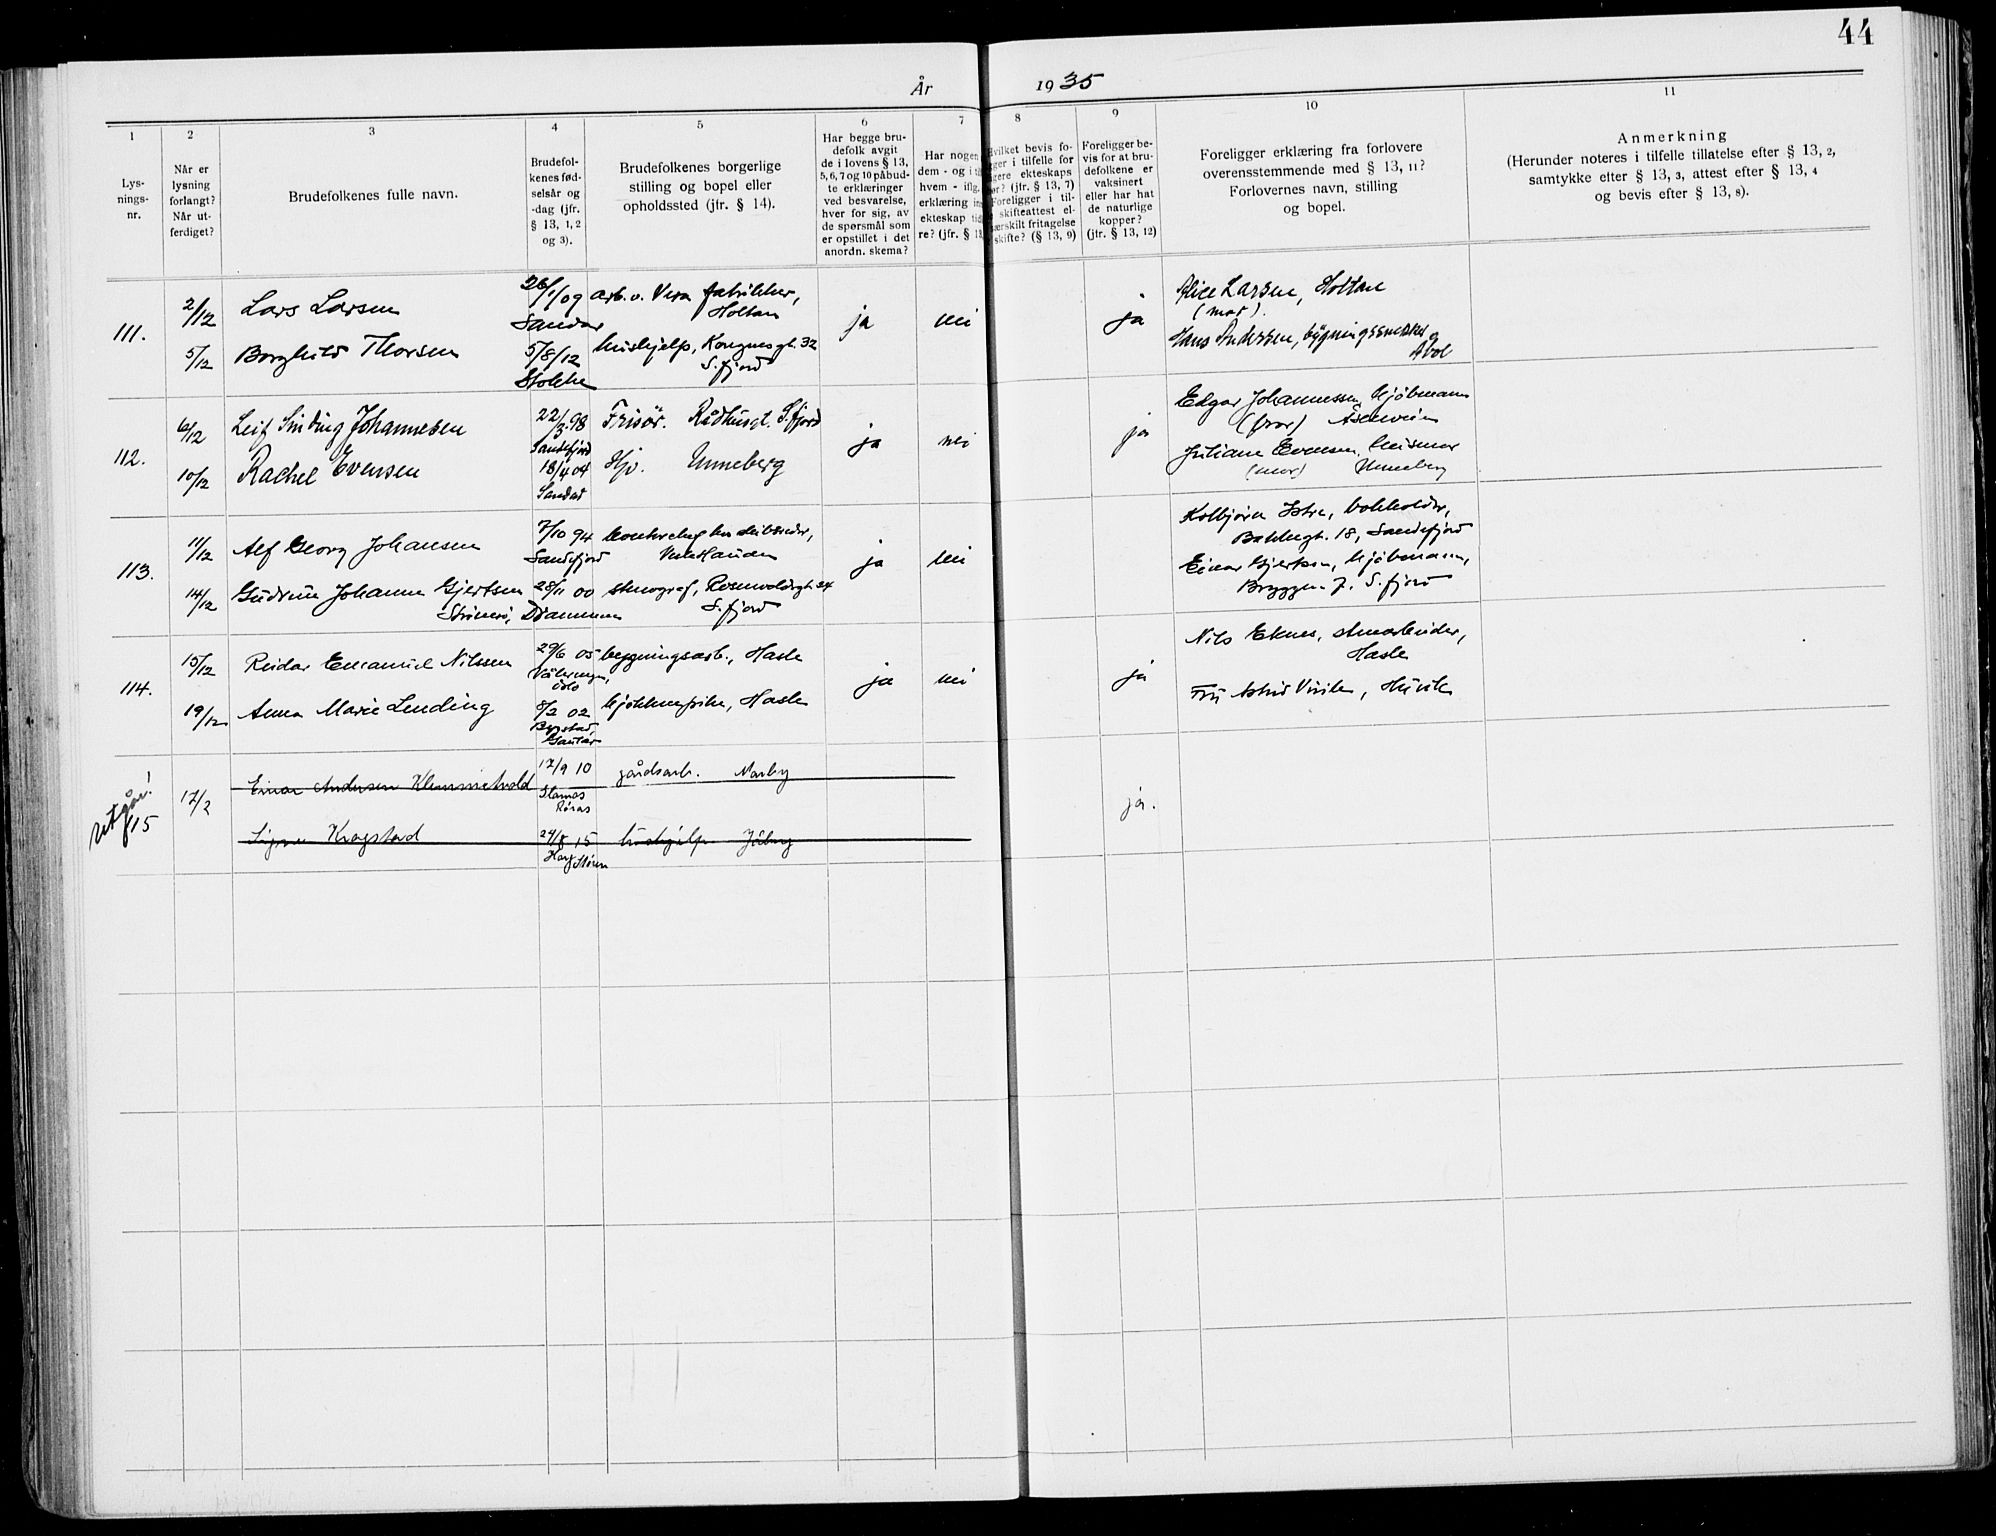 44
År 1935
1 2 3 4 5 6 7 8 9 10 11
Lys-
nings-
nr.
Når er
lysning
forlangt?
Når ut-
ferdiget?
Brudefolkenes fulle navn.
Brudefol-
kenes fød-
selsår og
-dag (jfr.
§ 13, 1, 2
og 3).
Brudefolkenes borgerlige
stilling og bopel eller
opholdssted (jfr. § 14).
Har begge bru-
defolk avgit
de i lovens § 13,
5, 6, 7 og 10 påbud-
te erklæringer
ved besvarelse,
hver for sig, av
de spørsmål som
er opstillet i det
anordn. skema?
Har nogen
dem - og i
hvem - iflg.
erklæring
ekteskap
re? (jfr. §
bevis fo-
i tilfelle for
ekteskaps
(jfr. § 13, 7)
Foreligger i til-
skifteattest el-
fritagelse
skifte? (§ 13, 9)
Foreligger be-
vis for at bru-
defolkene er
vaksinert
eller har hat
de naturlige
kopper?
(jfr. § 13, 12)
Foreligger erklæring fra forlovere
overensstemmende med § 13, 11?
Forlovernes navn, stilling
og bopel.
Anmerkning
(Herunder noteres i tilfelle tillatelse efter § 13, 2,
samtykke efter § 13, 3, attest efter § 13, 4
og bevis efter § 13, 8).
111.
2/12
5/12
Lars Larsen
Borghild Thorsen
26/1/09
Sandar
5/8/12
Stokke
arb. v. Vera fabrikker,
Holtan
hushjelp, Kongensgt. 32
S.fjord
ja nei ja
Alice Larsen, Holtan
(mor).
Hans Andersen, bygningssnekker
112.
6/12
10/12
Leif Sinding Johannesen
Rachel Evensen
22/3 98
Sandefjord
18/4 04
Sandar
Frisør. Rådhusgt. S.fjord
Hjv. Unneberg
ja nei ja
Edgar Johannessen, kjøbmann
(bror)
Juliane Evensen, husmor
(mor) Unneberg
113.
11/12
14/12
Alf Georg Johansen
Gudrun Johanne Gjertsen
7/10 94
Sandefjord
28/11 00
Strømsø, Drammen
stenograf, Rosenvoldsgt. 34
S.fjord
ja nei
Kolbjørn Istre, bokholder,
18, Sandefjord
Einar Gjertsen, kjøbmann,
Bryggen 7. S.fjord
114.
15/12
19/12
Reidar Emanuel Nilssen
Anna Marie Lending
29/6 05
Vålerengen,
Oslo
8/2 02
Bygstad,
Gaular
bygningsarb., Hasle
kjøkkenpike, Hasle
ja nei ja
Nils Eknes, stuearbeider,
Hasle
Fru Astrid Virik, Huvik
utgår!
115
17/2
Einar Andersen Klemmetvold
Signe Kragstad
17/9 10
Røros
24/8 15
Støren
gårdsarb.
hushjelp Jåberg
ja.